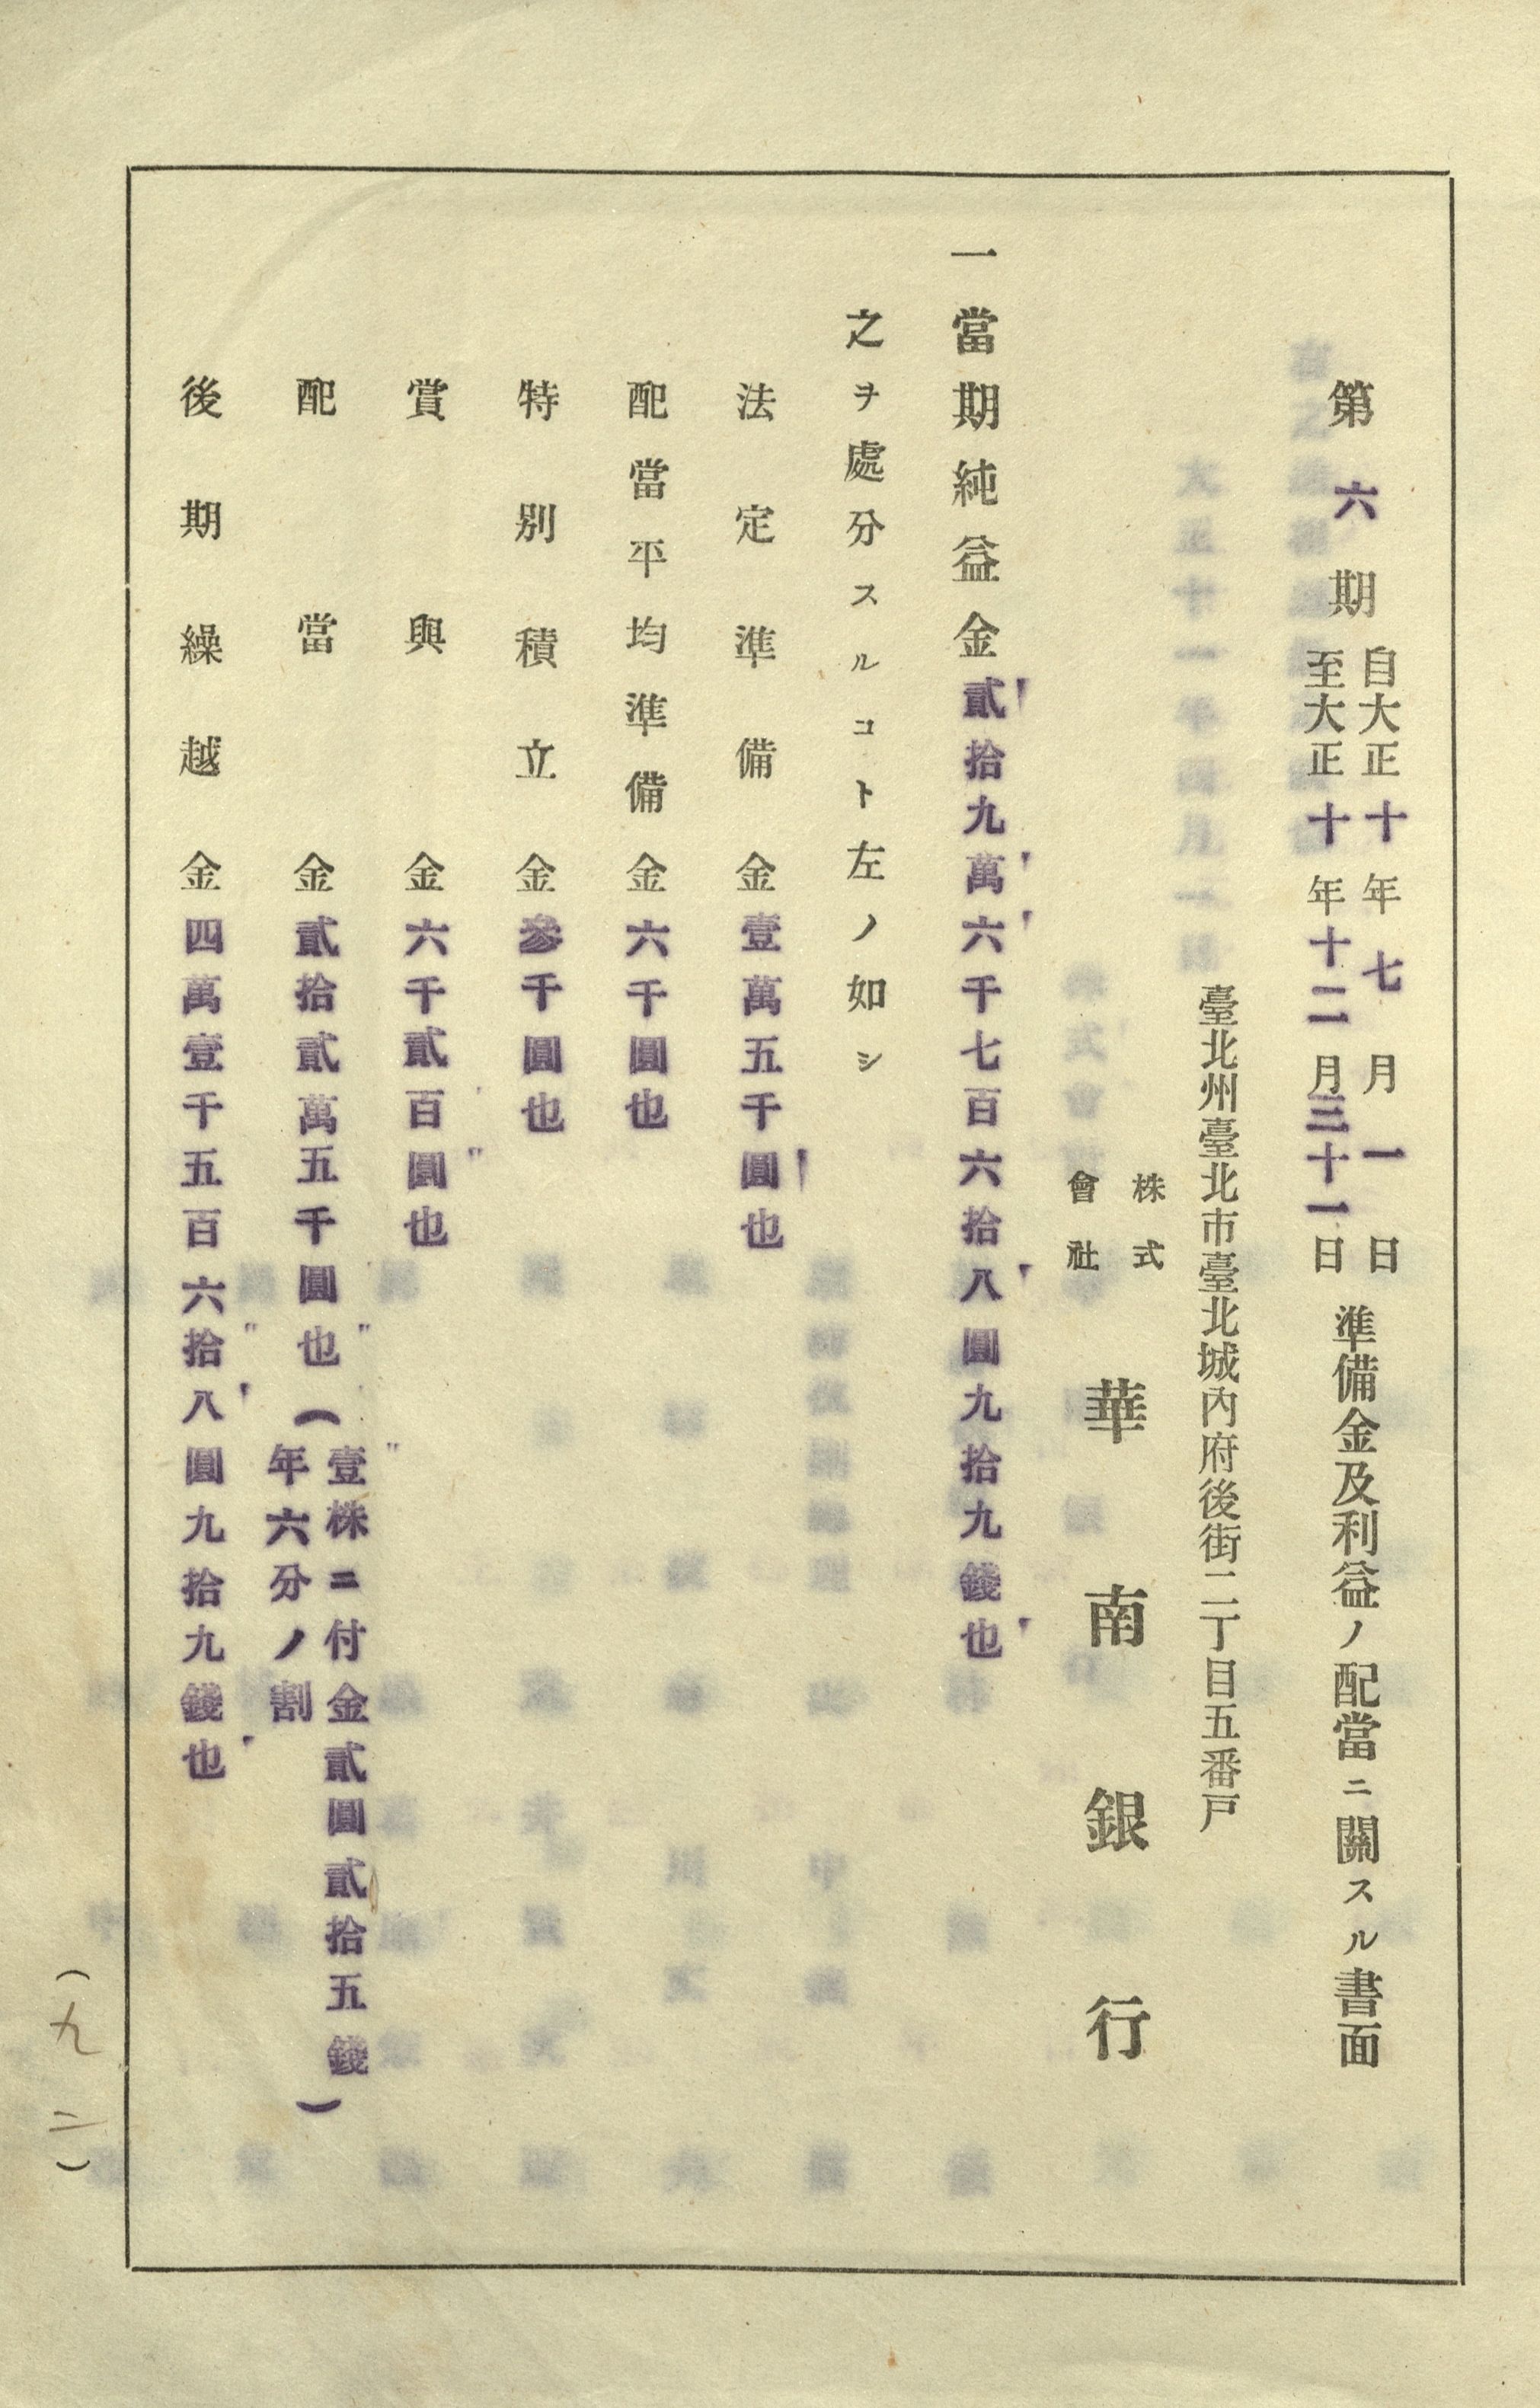 第六期自大正十年七月一日至大正十年十二月三十一日準備金及利益ノ配當ニ關スル書面
臺北州臺北市臺北城內府後街二丁目五番戸
株式會社華南銀行
一當期純益金貳拾九萬六千七百六拾八圓九拾九錢也
之ヲ處分スルコト左ノ如シ
法定準備金壹萬五千圓也
配當平均準備金六千圓也
特別積立金參千圓也
賞與金六千貳百圓也
配當金貳拾貳萬五千圓也(壹株ニ付金貳圓貳拾五錢年六分ノ割)
後期繰越金四萬壹千五百六拾八圓九拾九錢也
(九二)